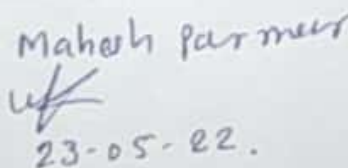 Mahesh Parmeur
23-05-22.